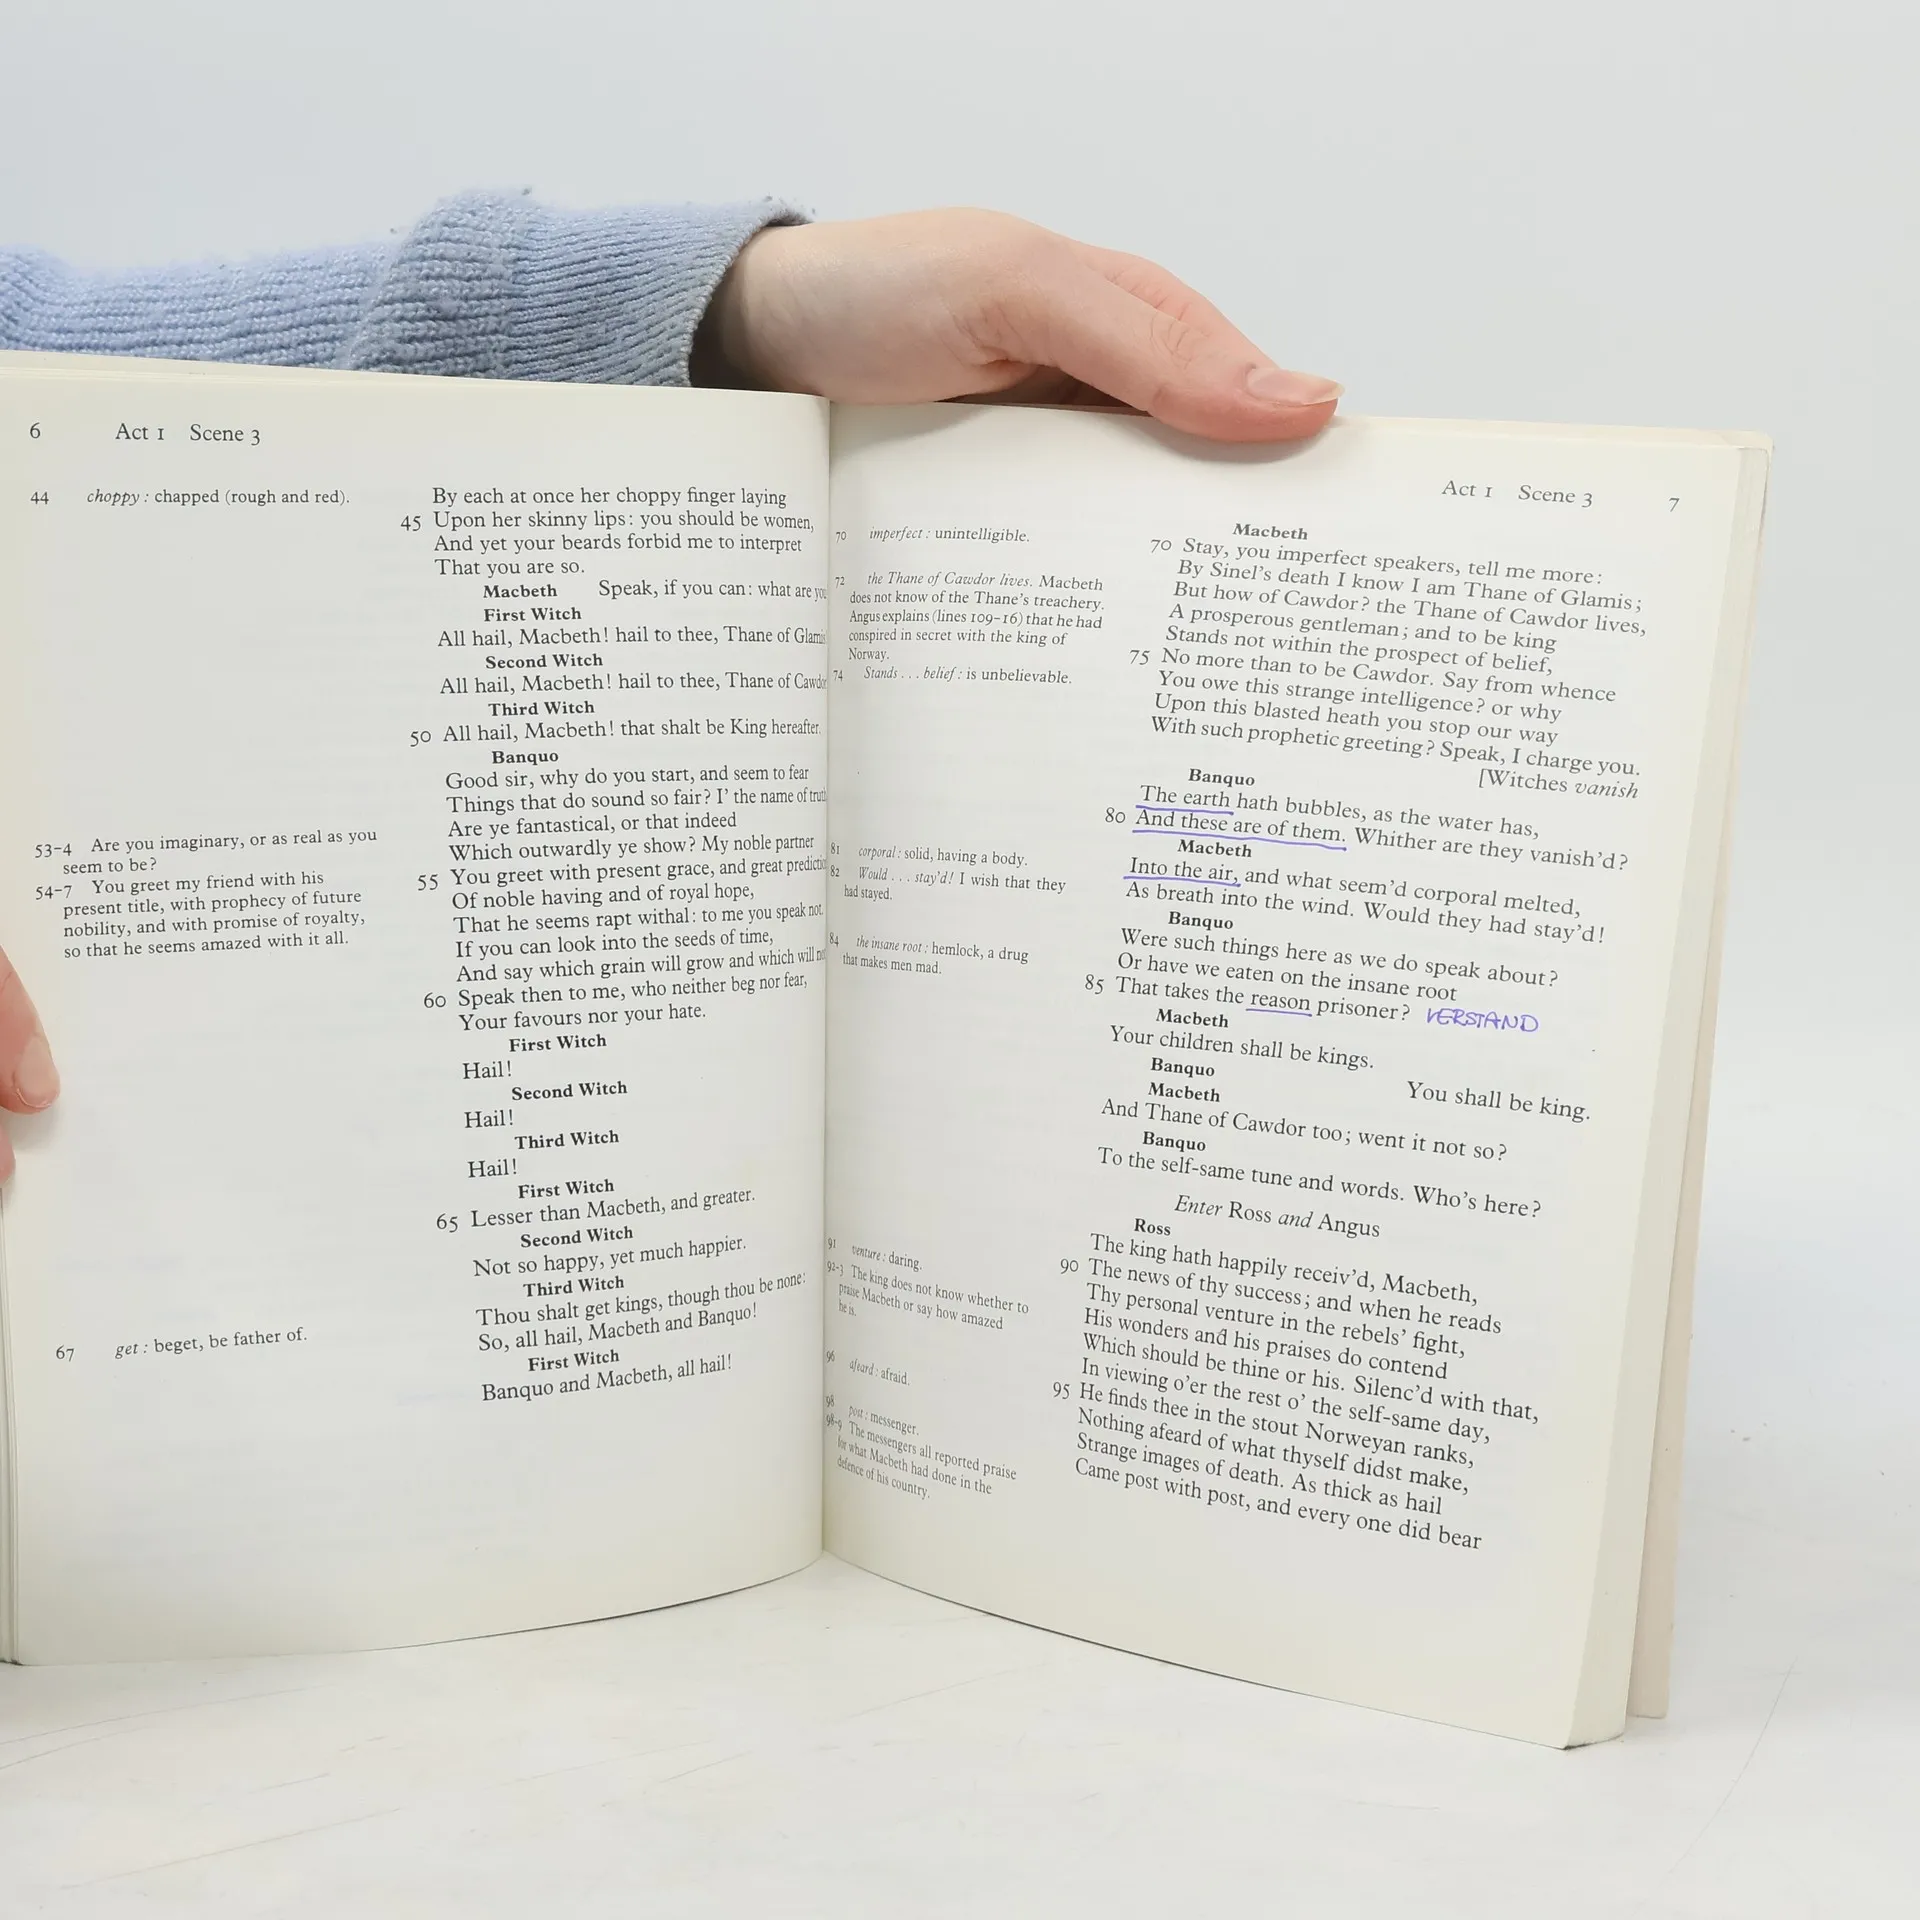 6 Act 1 Scene 3
44 choppy : chapped (rough and red).
53-4 Are you imaginary, or as real as you
seem to be?
54-7 You greet my friend with his
present title, with prophecy of future
nobility, and with promise of royalty,
so that he seems amazed with it all.
67 get : beget, be father of.
By each at once her choppy finger laying
45 Upon her skinny lips: you should be women,
And yet your beards forbid me to interpret
That you are so.
Macbeth Speak, if you can: what are you
First Witch
All hail, Macbeth! hail to thee, Thane of Glamis
Second Witch
All hail, Macbeth! hail to thee, Thane of Cawdor
Third Witch
50 All hail, Macbeth! that shalt be King hereafter.
Banquo
Good sir, why do you start, and seem to fear
Things that do sound so fair? I' the name of truth
Are ye fantastical, or that indeed
Which outwardly ye show? My noble partner
55 You greet with present grace, and great prediction
Of noble having and of royal hope,
That he seems rapt withal: to me you speak not.
If you can look into the seeds of time,
And say which grain will grow and which will not
60 Speak then to me, who neither beg nor fear,
Your favours nor your hate.
First Witch
Hail!
Second Witch
Hail!
Third Witch
Hail!
First Witch
65 Lesser than Macbeth, and greater.
Second Witch
Not so happy, yet much happier.
Third Witch
Thou shalt get kings, though thou be none:
So, all hail, Macbeth and Banquo!
First Witch
Banquo and Macbeth, all hail!
Act 1 Scene 3 7
70 imperfect : unintelligible.
72 the Thane of Cawdor lives. Macbeth
does not know of the Thane's treachery.
Angus explains (lines 109-16) that he had
conspired in secret with the king of
Norway.
74 Stands . . . belief : is unbelievable.
81 corporal : solid, having a body.
82 Would . . . stay'd! I wish that they
had stayed.
84 the insane root : hemlock, a drug
that makes men mad.
91 venture : daring.
92-3 The king does not know whether to
praise Macbeth or say how amazed
he is.
96 afeard : afraid.
98 post : messenger.
98-9 The messengers all reported praise
for what Macbeth had done in the
defence of his country.
Macbeth
70 Stay, you imperfect speakers, tell me more:
By Sinel's death I know I am Thane of Glamis;
But how of Cawdor? the Thane of Cawdor lives,
A prosperous gentleman; and to be king
Stands not within the prospect of belief,
75 No more than to be Cawdor. Say from whence
You owe this strange intelligence? or why
Upon this blasted heath you stop our way
With such prophetic greeting? Speak, I charge you.
[Witches vanish
Banquo
The earth hath bubbles, as the water has,
80 And these are of them. Whither are they vanish'd?
Macbeth
Into the air, and what seem'd corporal melted,
As breath into the wind. Would they had stay'd!
Banquo
Were such things here as we do speak about?
Or have we eaten on the insane root
85 That takes the reason prisoner? VERSTAND
Macbeth
Your children shall be kings.
Banquo You shall be king.
Macbeth
And Thane of Cawdor too; went it not so?
Banquo
To the self-same tune and words. Who's here?
Enter Ross and Angus
Ross
The king hath happily receiv'd, Macbeth,
90 The news of thy success; and when he reads
Thy personal venture in the rebels' fight,
His wonders and his praises do contend
Which should be thine or his. Silenc'd with that,
In viewing o'er the rest o' the self-same day,
95 He finds thee in the stout Norweyan ranks,
Nothing afeard of what thyself didst make,
Strange images of death. As thick as hail
Came post with post, and every one did bear